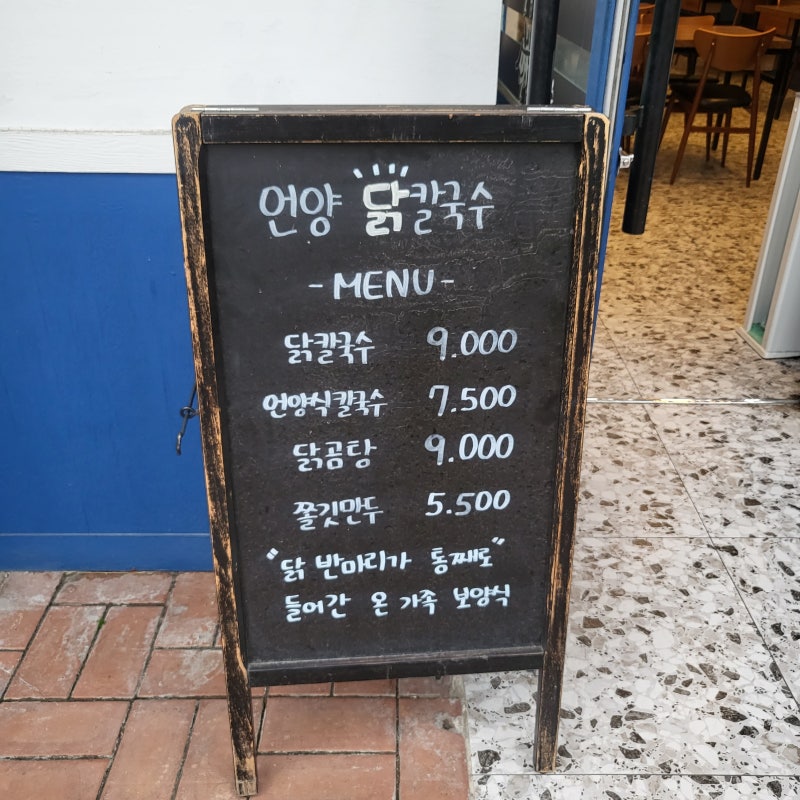 언양 닭칼국수
-MENU-
닭칼국수 9.000
언양식칼국수 7.500
닭곰탕 9.000
쫄깃만두 5.500
"닭 반마리가 통째로"
들어간 온 가족 보양식